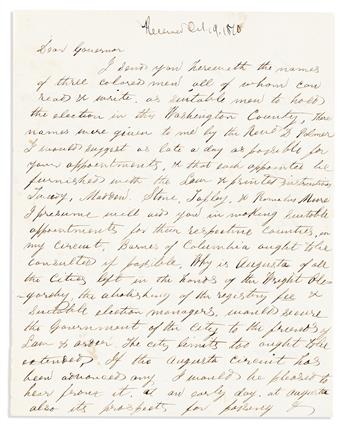 Received Oct. 19. 1870
Dear Governor
I send you herewith the names
of three colored men all of whom can
read & write. as suitable men to hold
the election in this Washington County, these
names were given to me by the Revd Palmer
I would suggest as late a day as possible for
your appointments, & that each appointee be
furnished with the Law & printed instructions
Madden, Stone, Tapley, &
I presume will aid you in making suitable
appointments for their respective Counties, in
my Circuit, Barnes of Columbia ought to be
consulted if possible, Why is Augusta of all
the Cities left in the hands of the
the abolishing of the registry fee &
suitable election managers, would secure
the Government of the City to the friends of
Law & order. The city limits too ought to be
extended, If the Augusta circuit has
been advanced any I would be pleased to
hear from it. at an early day. at Augusta
also its prospects for